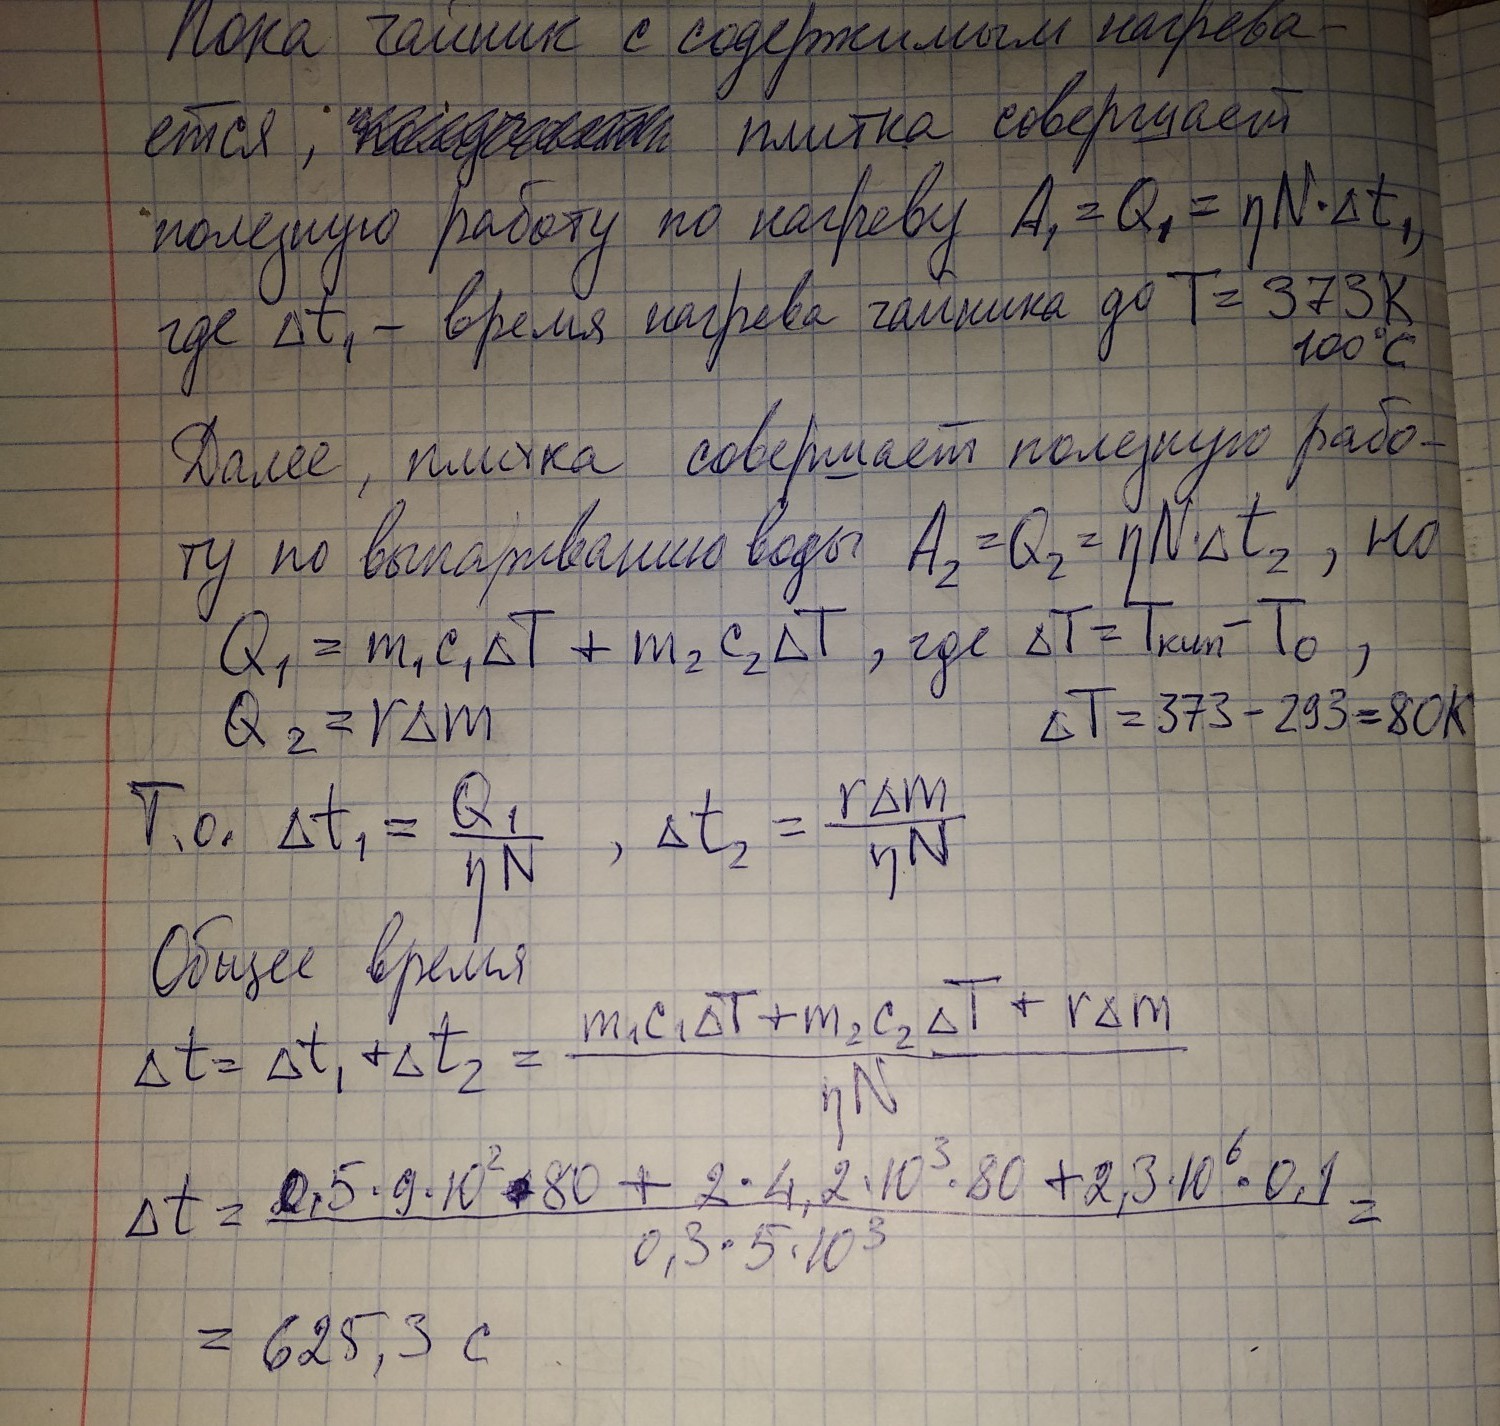 Пока чайник с содержимым нагрева-
ется, плитка совершает
полезную работу по нагреву A₁ = Q₁ = ηN·Δt₁,
где Δt₁ – время нагрева чайника до T = 373K
100°C
Далее, плитка совершает полезную рабо-
ту по выпариванию воды A₂ = Q₂ = ηN·Δt₂, но
Q₁ = m₁c₁ΔT + m₂c₂ΔT, где ΔT = Tкип - T₀,
Q₂ = rΔm ΔT = 373 - 293 = 80K
Т.о. Δt₁ = Q₁/ηN, Δt₂ = rΔm/ηN
Общее время
Δt = Δt₁ + Δt₂ = (m₁c₁ΔT + m₂c₂ΔT + rΔm)/ηN
Δt = (0,5·9·10²·80 + 2·4,2·10³·80 + 2,3·10⁶·0,1)/(0,3·5·10³) =
= 625,3 с